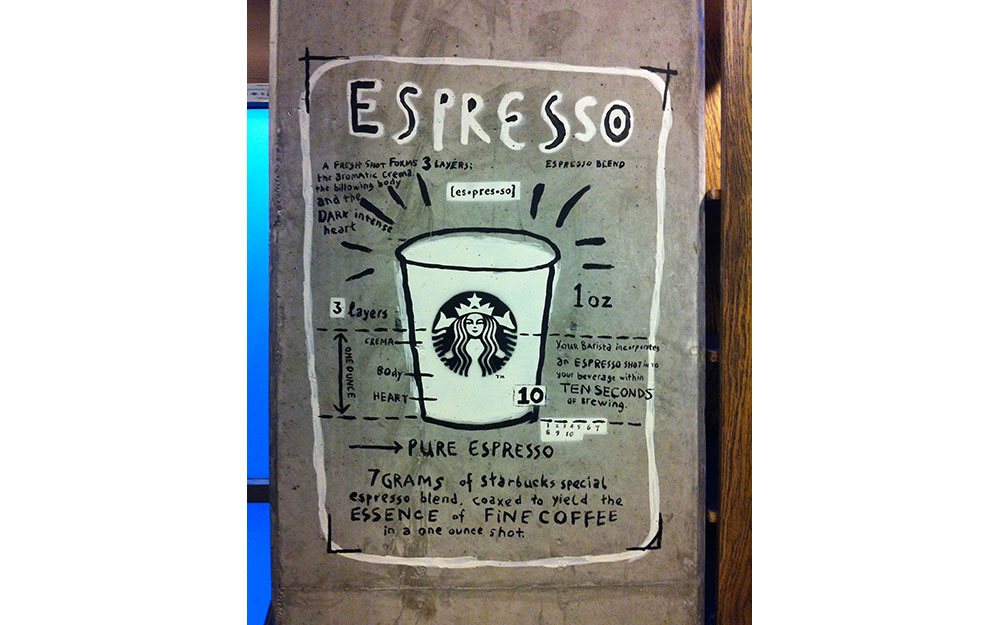 ESPRESSO
A FRESH SHOT FORMS 3 LAYERS:
the aromatic crema,
the billowing body
and the
DARK intense
heart
ESPRESSO BLEND
[es•pres•so]
1 oz
3 layers
CREMA
BODY
HEART
ONE OUNCE
TM
YOUR BARISTA incorporates
an ESPRESSO SHOT into
your beverage within
TEN SECONDS
OF Brewing.
10
1 2 3 4 5 6 7
8 9 10
PURE ESPRESSO
7 GRAMS of starbucks special
espresso blend, coaxed to yield the
ESSENCE of FINE COFFEE
in a one ounce shot.